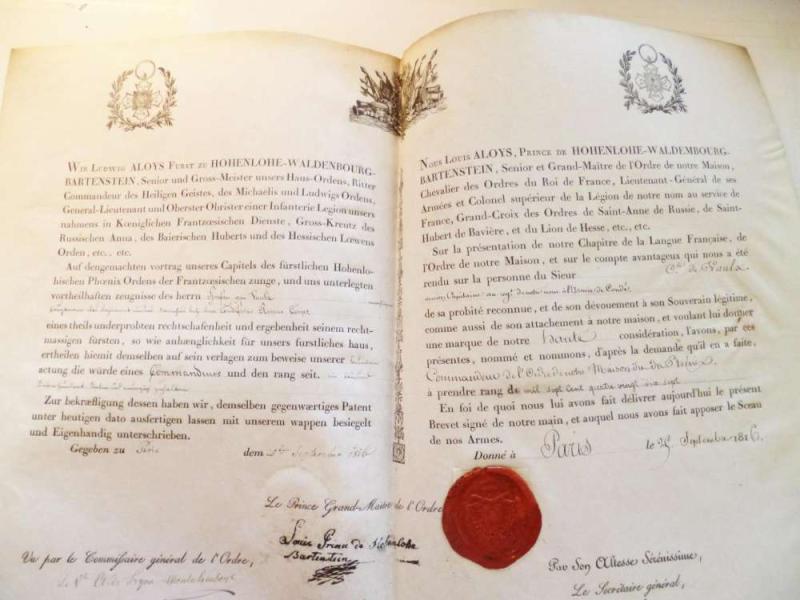 Wir Ludwig ALOYS Furst zu HOHENLOHE-WALDENBOURG-
BARTENSTEIN, Senior und Gross-Meister unsers Haus-Ordens, Ritter
Commandeur des Heiligen Geistes, des Michaelis und Ludwigs Ordens,
General-Lieutenant und Oberster Obrister einer Infanterie Legion unsers
nahmens in Kœniglichen Frantzœsischen Dienste, Gross-Kreutz des
Russischen Anna, des Baierischen Huberts und des Hessischen Lœwens
Orden, etc., etc.
Auf dengemachten vortrag unseres Capitels des fürstlichen Hohenlo-
hischen Phœnix Ordens der Frantzœsischen zunge, und uns unterlegten
vortheilhaften zeugnisse des herrn
eines theils underprobten rechtschafenheit und ergebenheit seinem recht-
massigen fursten, so wie anhænglichkeit für unsers furstliches haus,
ertheilen hiemit demselben auf sein verlagen zum beweise unserer
actung die würde eines Commandeurs und den rang seit.
Zur bekræfligung dessen haben wir, demselben gegenwærtiges Patent
unter heutigen dato ausfertigen lassen mit unserem wappen besiegelt
und Eigenhandig unterschrieben.
Gegeben zu Paris dem September 1816
Le Prince Grand-Maitre de l'Ordre
Louis Prince de Hohenlohe
Bartenstein
Vu par le Commissaire général de l'Ordre,
Nous Louis ALOYS, Prince de HOHENLOHE-WALDEMBOURG-
BARTENSTEIN, Senior et Grand-Maître de l'Ordre de notre Maison,
Chevalier des Ordres du Roi de France, Lieutenant-Général de ses
Armées et Colonel supérieur de la Légion de notre nom au service de
France, Grand-Croix des Ordres de Saint-Anne de Russie, de Saint-
Hubert de Bavière, et du Lion de Hesse, etc., etc.
Sur la présentation de notre Chapitre de la Langue Française, de
l'Ordre de notre Maison, et sur le compte avantageux qui nous a été
rendu sur la personne du Sieur de Vaulx
ancien Capitaine au régt de notre nom à l'Armée de Condé
de sa probité reconnue, et de son dévouement à son Souverain légitime,
comme aussi de son attachement à notre maison, et voulant lui donner
une marque de notre haute considération, l'avons, par ces
présentes, nommé et nommons, d'après la demande qu'il en a faite,
Commandeur de l'Ordre de notre Maison du Phénix
à prendre rang de mil sept cent quatre vingt dix sept
En foi de quoi nous lui avons fait délivrer aujourd'hui le présent
Brevet signé de notre main, et auquel nous avons fait apposer le Sceau
de nos Armes.
Donné à Paris le 25 Septembre 1816.
Par Son Altesse Sérénissime,
Le Secrétaire général,